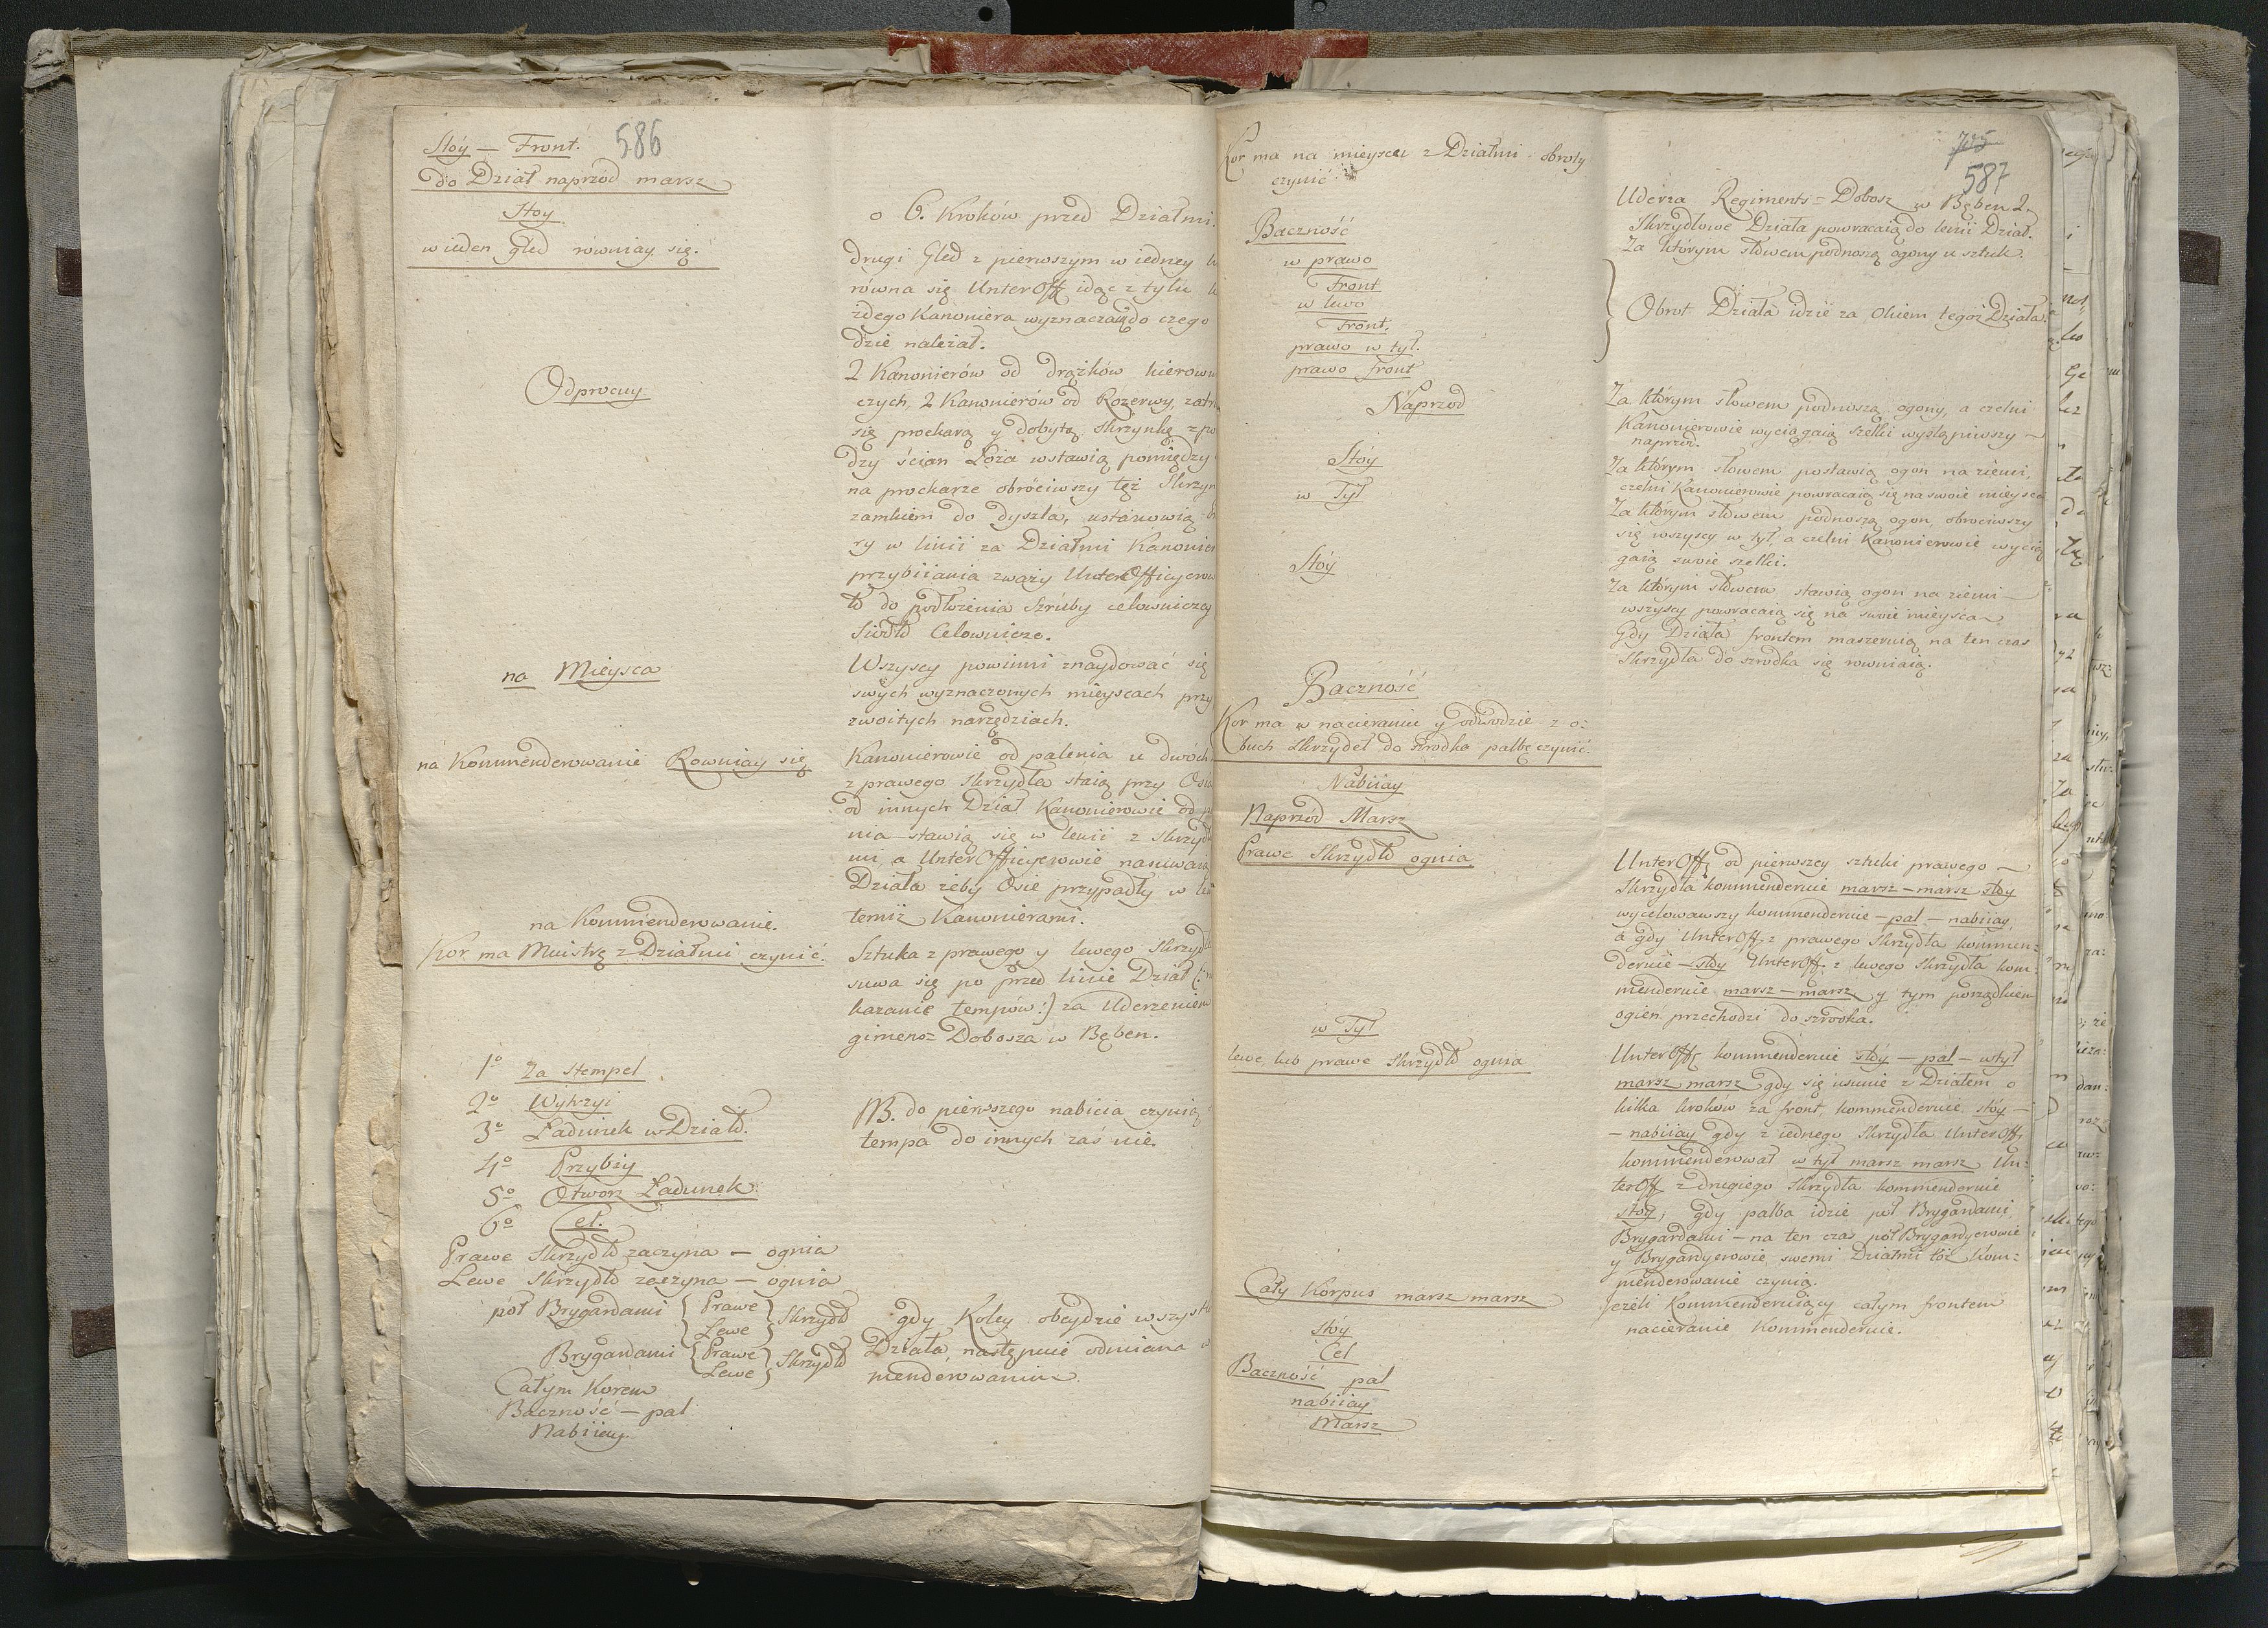 586
Stóy — Front.
do Dział naprzód marsz
Stoy
w ieden gled równiay się.
Odprocuy
na Mieysca
na Kommenderowanie Rowniay się
na Kommenderowanie.
Kor ma Mustrę z Działmi czynić.
1º Za stempel
2º Wytrzyi
3º Ładunek w Działo.
4º Przybiy
5º Otworz Ładunek
6º Cel.
Prawe Skrzydło zaczyna — ognia
Lewe Skrzydło zaczyna — ognia
pół Brygardami { Prawe Lewe } Skrzydło
Brygardami { Prawe Lewe } Skrzydło
Całym Korem
Baczność — pal
Nabiiay
o 6. Kroków przed Działmi.
drugi Gled z pierwszym w iedney
równa się UnterOff idąc z tyłu
żdego Kanoniera wyznacza do czego
dzie należał.
2 Kanonierów od drążków kierowni
czych, 2 Kanonierów od Rezerwy,
się prockarą y dobytą Skrzynkę
dzy ścian Łoża wstawią pomiędzy
na prockarze obróciwszy też Skrzyn
zamkiem do dyszla, ustanowią
ry w linii za Działmi Kanonier
przybiiania zważy UnterOfficyerow
do podłożenia Szruby celowniczey
Siodło Celownicze.
Wszyscy powinni znaydować się
swych wyznaczonych mieyscach przy
zwoitych narzędziach.
Kanonierowie od palenia u dwóch
z prawego Skrzydła staią przy Osia
od innych Dział Kanonierowie od
nia stawią się w lenii z Skrzydł
mi, a UnterOfficyerowie nasuwaią
Działa żeby Osie przypadły w
temiż Kanonierami.
Sztuka z prawego y lewego Skrzydła
suwa się po przed linie Dział
kazanie tempów:) za Uderzeniem
gimens= Dobosza w Bęben.
NB. do pierwszego nabicia czynią
tempa do innych zaś nie.
gdy Koley obeydzie wszyst
Działa, następuie odmiana w
menderowaniu
Kor ma na mieyscu z Działmi obroty
czynić
Baczność
w prawo
Front
w lewo
Front.
prawo w tył.
prawo front
Naprzod
Stóy
w Tył
Stóy
Baczność
Kor ma w nacieraniu y odwodzie z o=
buch Skrzydeł do szrodka palbę czynić.
Nabiiay
Naprzód Marsz
Prawe Skrzydło ognia
w Tył
lewe, lub prawe Skrzydło ognia
Cały Korpus marsz marsz
stóy
Cel
Baczność pal
nabiiay
Marsz
705
587
Uderza Regiments= Dobosz w Bęben 2.
Skrzydłowe Działa powracaią do lenii Dział.
Za którym słowem podnoszą ogony u sztuk.
} Obrot Działa idzie za Okiem tegoż Działa.
Za którym słowem podnoszą ogony, a czelni
Kanonierowie wyciągaią szelki wystąpiwszy
naprzód.
Za którym słowem postawią ogon na ziemi,
czelni Kanonierowie powracaią się na swoie mieysca
Za którym słowem podnoszą ogon, obrociwszy
się wszyscy w tył, a czelni Kanonierowie wycią
gaią swoie szelki.
Za którym słowem stawią ogon na ziemi
wszyscy powracaią się na swoie mieysca
Gdy Działa frontem maszeruią na ten czas
Skrzydła do szrodka się rowniaią.
UnterOff od pierwszey sztuki prawego
Skrzydła kommenderuie marsz — marsz stóy
wycelowawszy kommenderuie — pal — nabiiay,
a gdy UnterOff: z prawego Skrzydła kommen=
deruie — stóy UnterOff. z lewego Skrzydła kom=
menderuie marsz — marsz y tym porządkiem
ogień przechodzi do szrodka.
UnterOff kommenderuie stóy — pal — wtył
marsz marsz gdy się usunie z Działem o
kilka kroków za front, kommenderuie stóy —
— nabiiay gdy z iednego Skrzydła UnterOff
kommenderował w tył marsz marsz Un=
terOff z drugiego Skrzydła kommenderuie
stóy; gdy palba idzie pół Brygardami,
Brygardami — na ten czas pół Brygardyerowie
y Brygardyerowie, swemi Działmi toż kom=
menderowanie czynią.
jeżeli Kommenderuiący całym frontem
nacieranie kommenderuie.